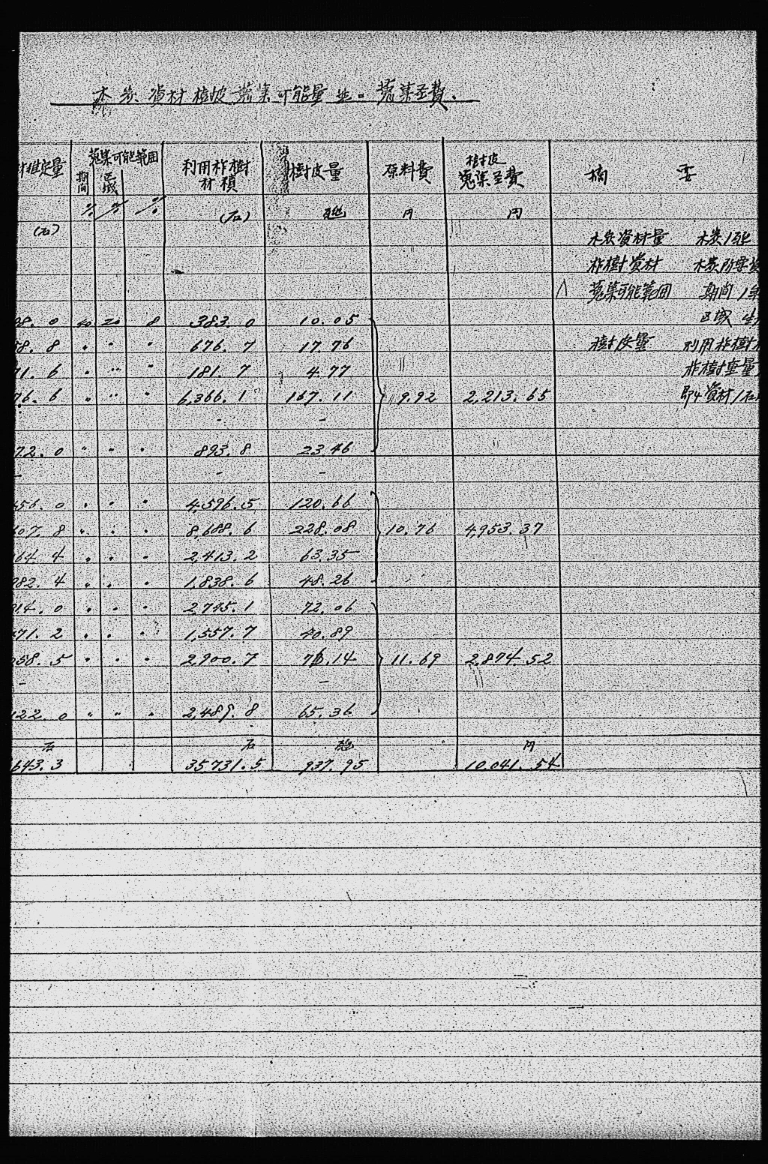 木炭資材樹皮蒐集可能量並ニ蒐集至費.
推定量 蒐集可能範囲 利用柞樹材積 樹皮量 原料費 樹皮蒐集至費 摘 要
期間 区域
(石) % % % (石) 瓲 円 円
木炭資材量 木炭1瓲
柞樹資材 木炭
蒐集可能範囲 期间 1年
8.0 40 20 8 383.0 10.05 区域
8.8 〃 〃 〃 676.7 17.76 樹皮量 利用柞樹
1.6 〃 〃 〃 181.7 4.77 柞樹重量
76.6 〃 〃 〃 6,366.1 167.11 9.92 2,213.65 即4資材1石
- -
72.0 〃 〃 〃 893.8 23.46
- - -
456.0 〃 〃 〃 4,596.5 120.66
607.8 〃 〃 〃 8,688.6 228.08 10.76 4,953.37
64.4 〃 〃 〃 2,413.2 63.35
982.4 〃 〃 〃 1,838.6 48.26
14.0 〃 〃 〃 2,745.1 72.06
71.2 〃 〃 〃 1,557.7 40.89
58.5 〃 〃 〃 2,900.7 76.14 11.69 2,874.52
- -
122.0 〃 〃 〃 2,489.8 65.36
石 石 瓲 円
643.3 35,731.5 937.95 10,041.54